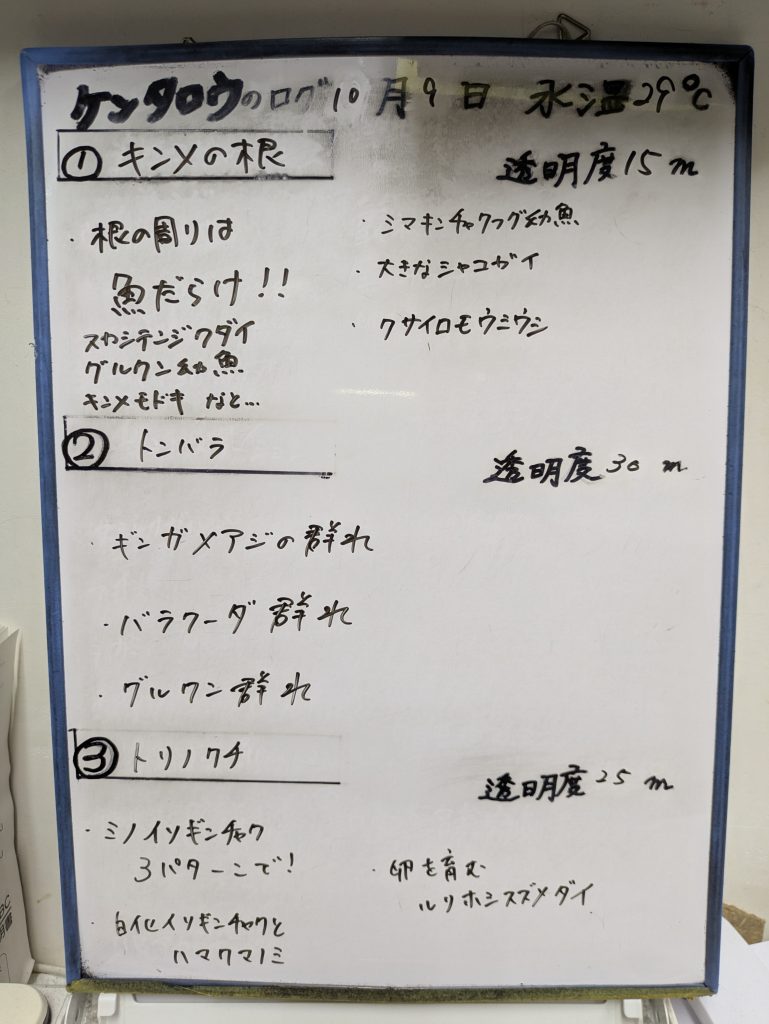 ケンタロウのログ 10月9日 水温29℃
① キンメの根
透明度15m
・根の周りは
魚だらけ!!
スカシテンジクダイ
グルクン幼魚
キンメモドキ など…
・シマキンチャクフグ幼魚
・大きなシャコガイ
・クサイロモウミウシ
② トンバラ
透明度30m
・ギンガメアジの群れ
・バラクーダ群れ
・グルクン群れ
③ トリノクチ
透明度25m
・ミノイソギンチャク
3パターンで!
・白化イソギンチャクと
ハマクマノミ
・卵を育む
ルリホシスズメダイ